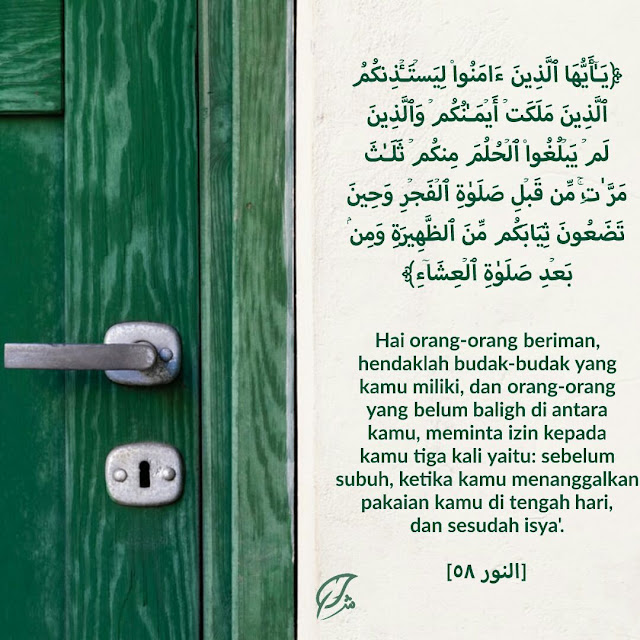 ﴿يَـٰٓأَيُّهَا ٱلَّذِينَ ءَامَنُوا۟ لِيَسْتَـْٔذِنكُمُ
ٱلَّذِينَ مَلَكَتْ أَيْمَـٰنُكُمْ وَٱلَّذِينَ
لَمْ يَبْلُغُوا۟ ٱلْحُلُمَ مِنكُمْ ثَلَـٰثَ
مَرَّٰتٍۢ ۚ مِّن قَبْلِ صَلَوٰةِ ٱلْفَجْرِ وَحِينَ
تَضَعُونَ ثِيَابَكُم مِّنَ ٱلظَّهِيرَةِ وَمِنۢ
بَعْدِ صَلَوٰةِ ٱلْعِشَآءِ﴾
Hai orang-orang beriman,
hendaklah budak-budak yang
kamu miliki, dan orang-orang
yang belum baligh di antara
kamu, meminta izin kepada
kamu tiga kali yaitu: sebelum
subuh, ketika kamu menanggalkan
pakaian kamu di tengah hari,
dan sesudah isya'.
[النور ٥٨]